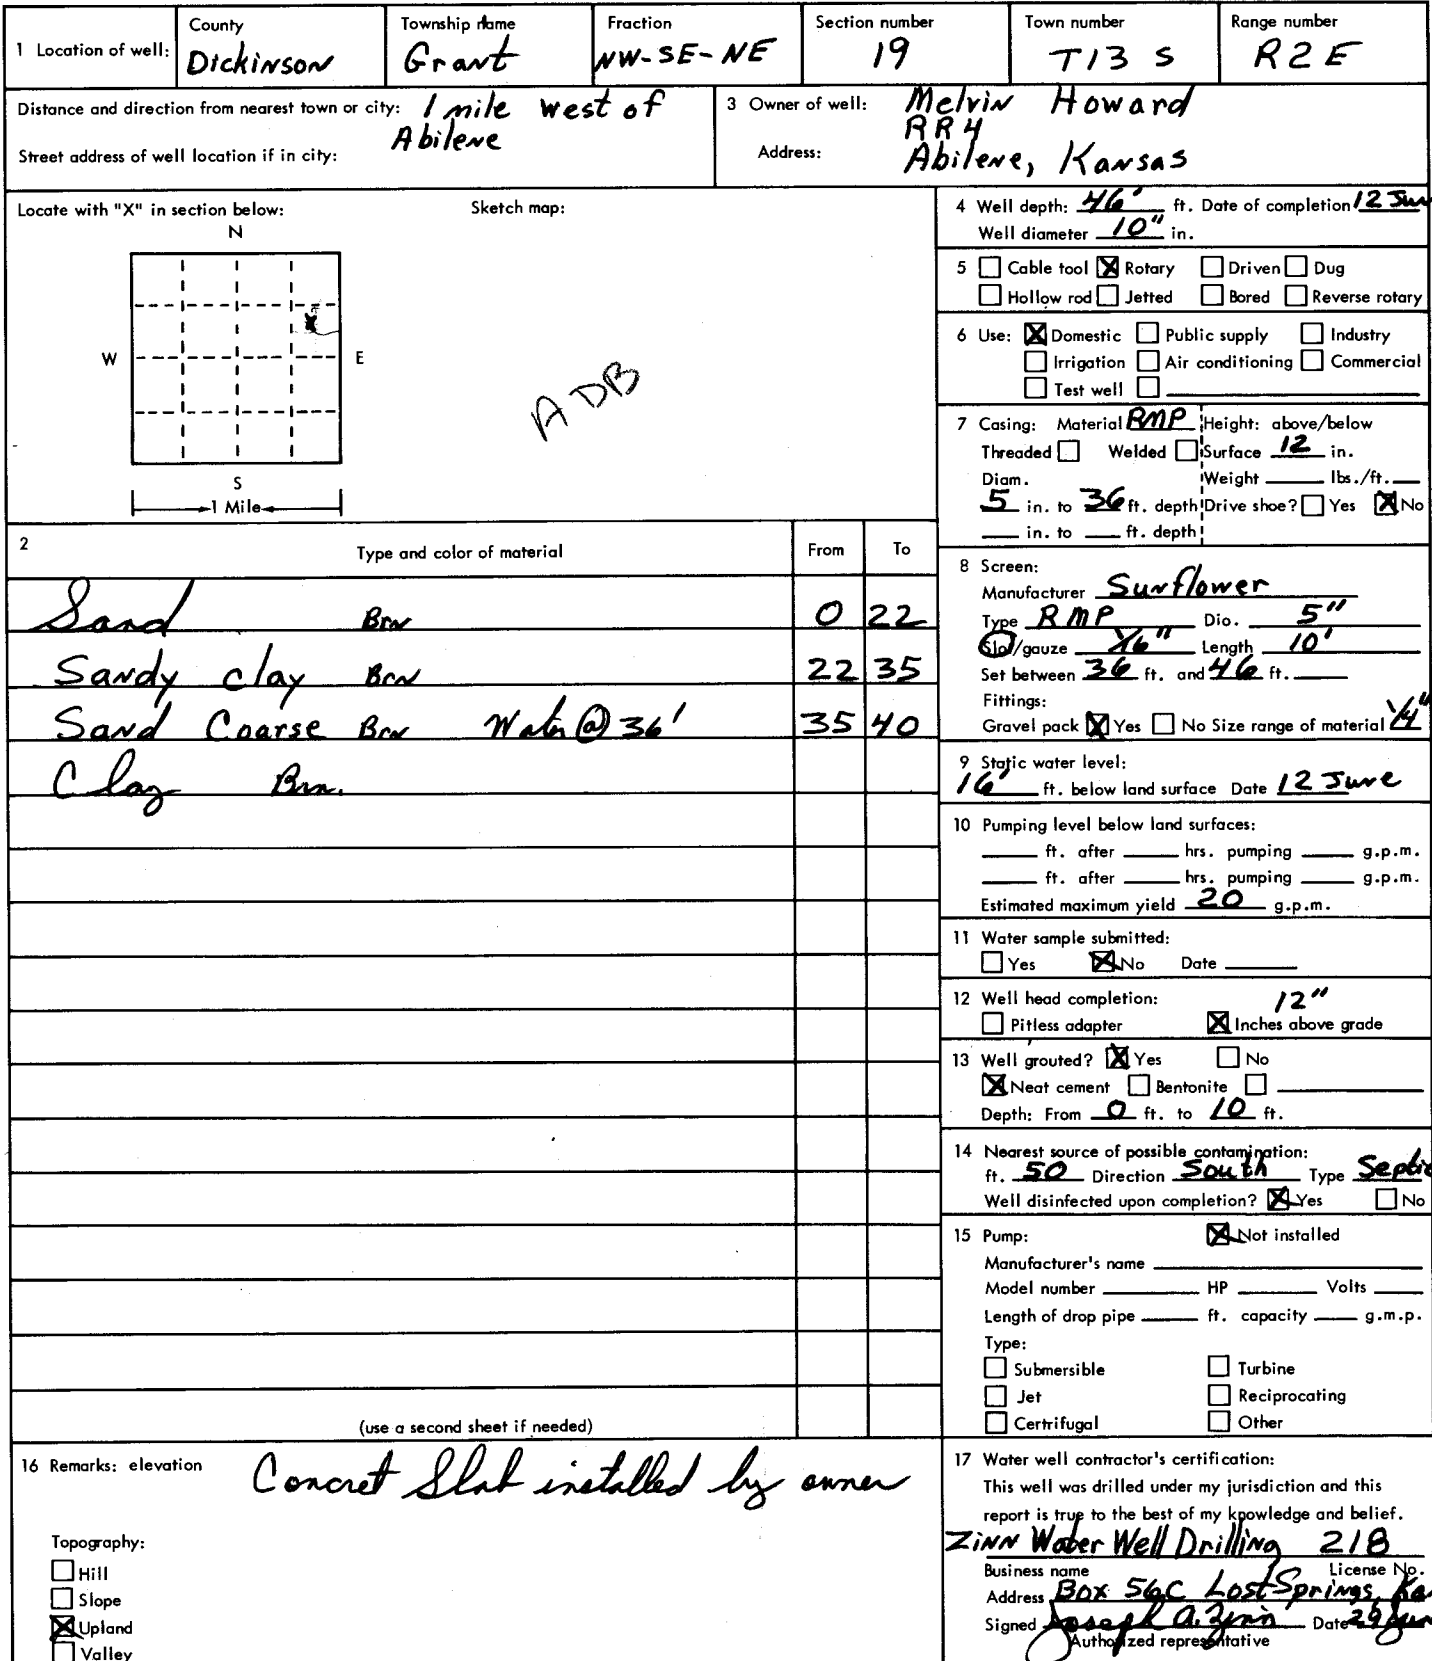 1 Location of well: County Dickinson Township name Grant Fraction NW-SE-NE Section number 19 Town number T13 S Range number R2E
Distance and direction from nearest town or city: 1 mile west of
Abilene
Street address of well location if in city:
3 Owner of well: Melvin Howard
RR4
Address: Abilene, Kansas
Locate with "X" in section below: Sketch map:
N
W E
S
1 Mile
X
ADB
2 Type and color of material From To
Sand Brn 0 22
Sandy clay Brn 22 35
Sand Coarse Brn Water @ 36' 35 40
Clay Brn.
(use a second sheet if needed)
4 Well depth: 46' ft. Date of completion 12 June
Well diameter 10" in.
5 Cable tool X Rotary Driven Dug
Hollow rod Jetted Bored Reverse rotary
6 Use: X Domestic Public supply Industry
Irrigation Air conditioning Commercial
Test well
7 Casing: Material RMP Height: above/below
Threaded Welded Surface 12 in.
Diam. Weight lbs./ft.
5 in. to 36 ft. depth Drive shoe? Yes X No
in. to ft. depth
8 Screen:
Manufacturer Sunflower
Type RMP Dio. 5"
Slot/gauze 1/16" Length 10'
Set between 36 ft. and 46 ft.
Fittings:
Gravel pack X Yes No Size range of material 1/4"
9 Static water level:
16' ft. below land surface Date 12 June
10 Pumping level below land surfaces:
ft. after hrs. pumping g.p.m.
ft. after hrs. pumping g.p.m.
Estimated maximum yield 20 g.p.m.
11 Water sample submitted:
Yes X No Date
12 Well head completion: 12"
Pitless adapter X Inches above grade
13 Well grouted? X Yes No
X Neat cement Bentonite
Depth: From 0 ft. to 10 ft.
14 Nearest source of possible contamination:
ft. 50 Direction South Type Septic
Well disinfected upon completion? X Yes No
15 Pump: X Not installed
Manufacturer's name
Model number HP Volts
Length of drop pipe ft. capacity g.m.p.
Type:
Submersible Turbine
Jet Reciprocating
Certrifugal Other
16 Remarks: elevation Concret Slab installed by owner
Topography:
Hill
Slope
X Upland
Valley
17 Water well contractor's certification:
This well was drilled under my jurisdiction and this
report is true to the best of my knowledge and belief.
Zinn Water Well Drilling 218
Business name License No.
Address Box 56C Lost Springs, Ka
Signed Joseph A. Zinn Date 29 Jun
Authorized representative